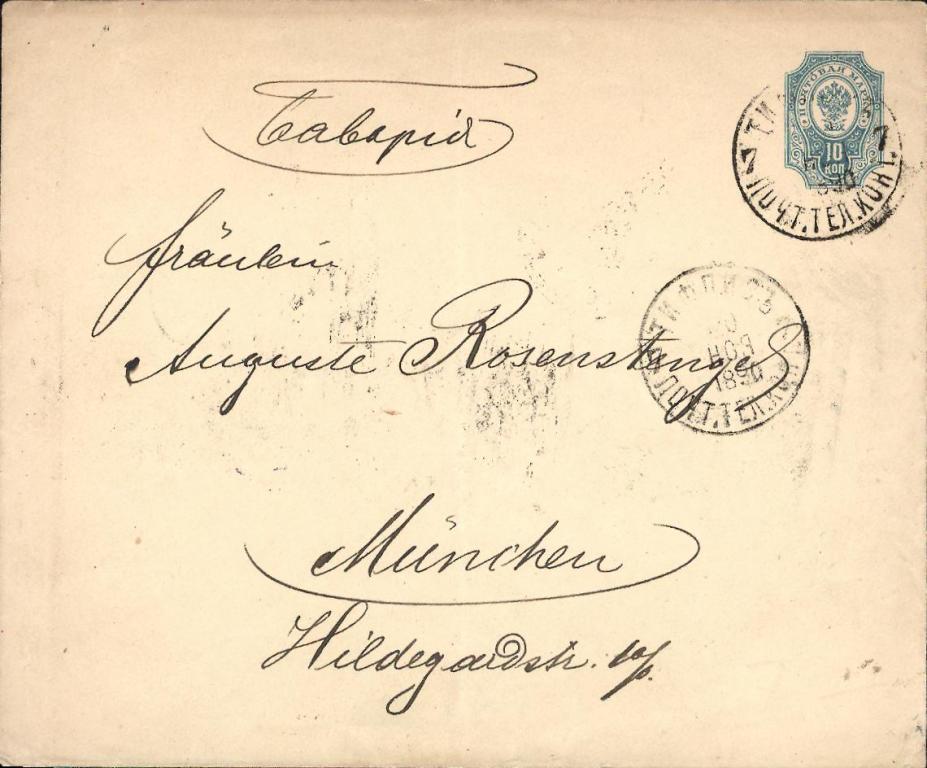 Баварія
ПОЧТОВАЯ МАРКА
10
КОП
7 7
ПОЧТ.ТЕЛ.КОНТ.
Fräulein
Auguste Rosenstengel
ТИФЛИСЪ
НОЯ
1890
ПОЧТ.ТЕЛ.КОН
München
Hildegardstr.